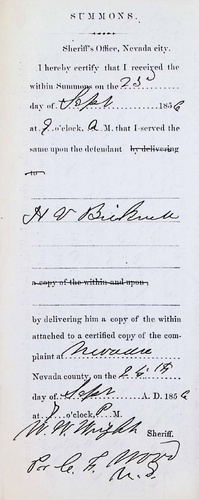 SUMMONS.
Sheriff's Office, Nevada city.
I hereby certify that I received the
within Summons on the 23d
day of Sept 1856
at 9 o'clock, A M. that I served the
same upon the defendant by delivering
to
H V
a copy of the within and upon,
by delivering him a copy of the within
attached to a certified copy of the com-
plaint at Nevada
Nevada county, on the 26th
day of Sept A. D. 1856
at o'clock, P. M.
W. W. Wright Sheriff.
Por C. F. Wood